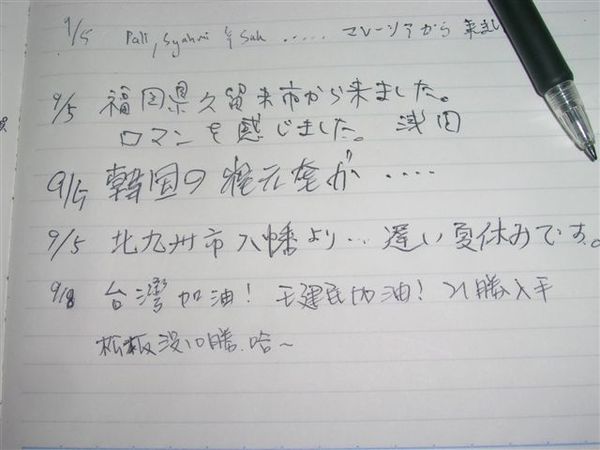 9/5 Pall, Syahmi & Suh ..... マレーシアから 来まし
9/5 福岡県久留米市から来ました。
ロマンを感じました。 浅田
9/5 韓国の 元 が ....
9/5 北九州市八幡より... 遅い夏休みです。
9/8 台灣加油! 王建民加油! 21勝入手
松板没10勝.哈~